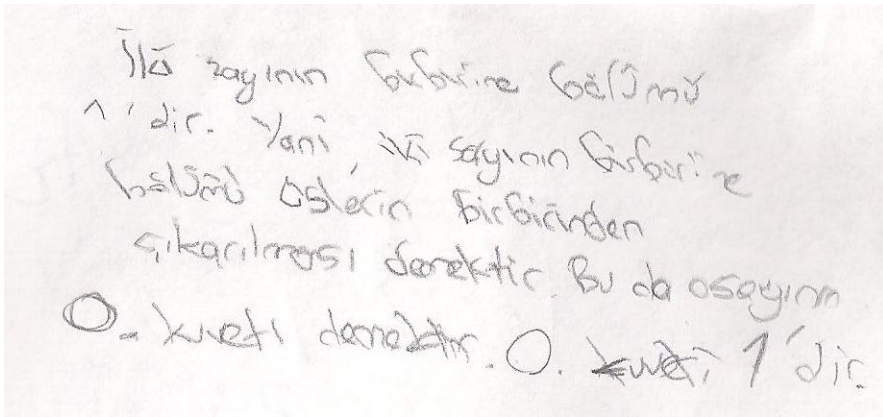 İki sayının birbirine bölümü
1'dir. Yani, iki sayının birbirine
bölümü üslerin birbirinden
çıkarılması demektir. Bu da o sayının
0. kuveti demektir. 0. kuveti 1'dir.